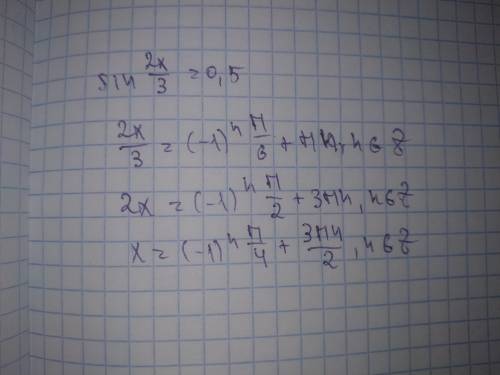 sin 2x/3 = 0,5
2x/3 = (-1)ⁿ π/6 + πn, n∈Z
2x = (-1)ⁿ π/2 + 3πn, n∈Z
x = (-1)ⁿ π/4 + 3πn/2, n∈Z